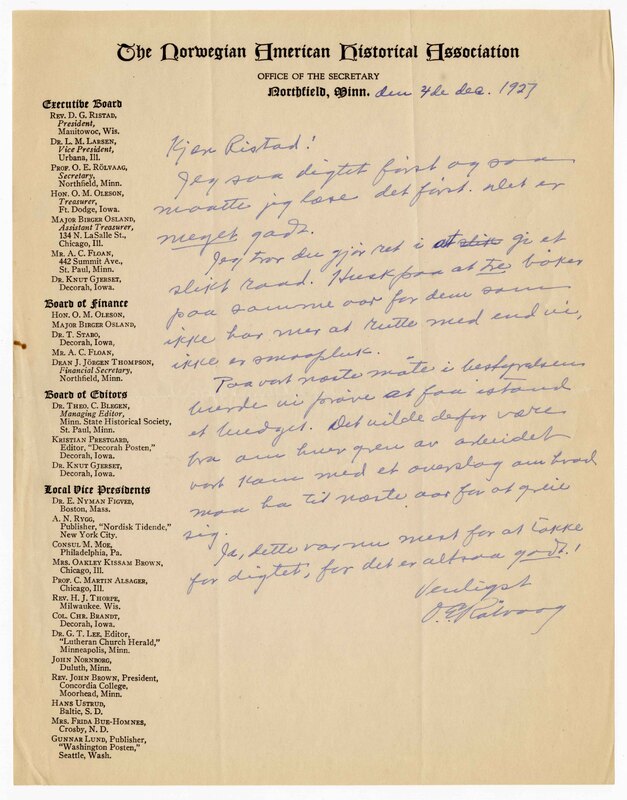 The Norwegian American Historical Association
OFFICE OF THE SECRETARY
Northfield, Minn. den 4de dec. 1927
Executive Board
REV. D. G. RISTAD,
President,
Manitowoc, Wis.
DR. L. M. LARSEN,
Vice President,
Urbana, Ill.
PROF. O. E. RÖLVAAG,
Secretary,
Northfield, Minn.
HON. O. M. OLESON,
Treasurer,
Ft. Dodge, Iowa.
MAJOR BIRGER OSLAND,
Assistant Treasurer,
134 N. LaSalle St.,
Chicago, Ill.
MR. A. C. FLOAN,
442 Summit Ave.,
St. Paul, Minn.
DR. KNUT GJERSET,
Decorah, Iowa.
Board of Finance
HON. O. M. OLESON,
MAJOR BIRGER OSLAND,
DR. T. STABO,
Decorah, Iowa,
MR. A. C. FLOAN,
DEAN J. JÖRGEN THOMPSON,
Financial Secretary,
Northfield, Minn.
Board of Editors
DR. THEO. C. BLEGEN,
Managing Editor,
Minn. State Historical Society,
St. Paul, Minn.
KRISTIAN PRESTGARD,
Editor, "Decorah Posten,"
Decorah, Iowa.
DR. KNUT GJERSET,
Decorah, Iowa.
Local Vice Presidents
DR. E. NYMAN FIGVED,
Boston, Mass.
A. N. RYGG,
Publisher, "Nordisk Tidende,"
New York City.
CONSUL M. MOE,
Philadelphia, Pa.
MRS. OAKLEY KISSAM BROWN,
Chicago, Ill.
PROF. C. MARTIN ALSAGER,
Chicago, Ill.
REV. H. J. THORPE,
Milwaukee. Wis.
COL. CHR. BRANDT,
Decorah, Iowa.
DR. G. T. LEE, Editor,
"Lutheran Church Herald,"
Minneapolis, Minn.
JOHN NORNBORG,
Duluth, Minn.
REV. JOHN BROWN, President,
Concordia College,
Moorhead, Minn.
HANS USTRUD,
Baltic, S. D.
MRS. FRIDA BUE-HOMNES,
Crosby, N. D.
GUNNAR LUND, Publisher,
"Washington Posten,"
Seattle, Wash.
Kjære Ristad!
Jeg saa digtet först og saa
maatte jeg læse det först. Det er
meget godt.
Jeg tror du gjör ret i at slik gi et
slikt raad. Husk paa at tre böker
paa samme aar for dem som
ikke har mer at rutte med end vi,
ikke er smaapluk.
Paa vort næste möte i bestyrelsen
burde vi pröve at faa istand
et budget. Det vilde derfor være
bra om hver gren av arbeidet
vort kom med et overslag om hvad
maa ha til næste aar for at greie
sig.
Ja, dette var nu mest for at takke
for digtet, for det er altsaa godt!
Venligst
O. E. Rölvaag